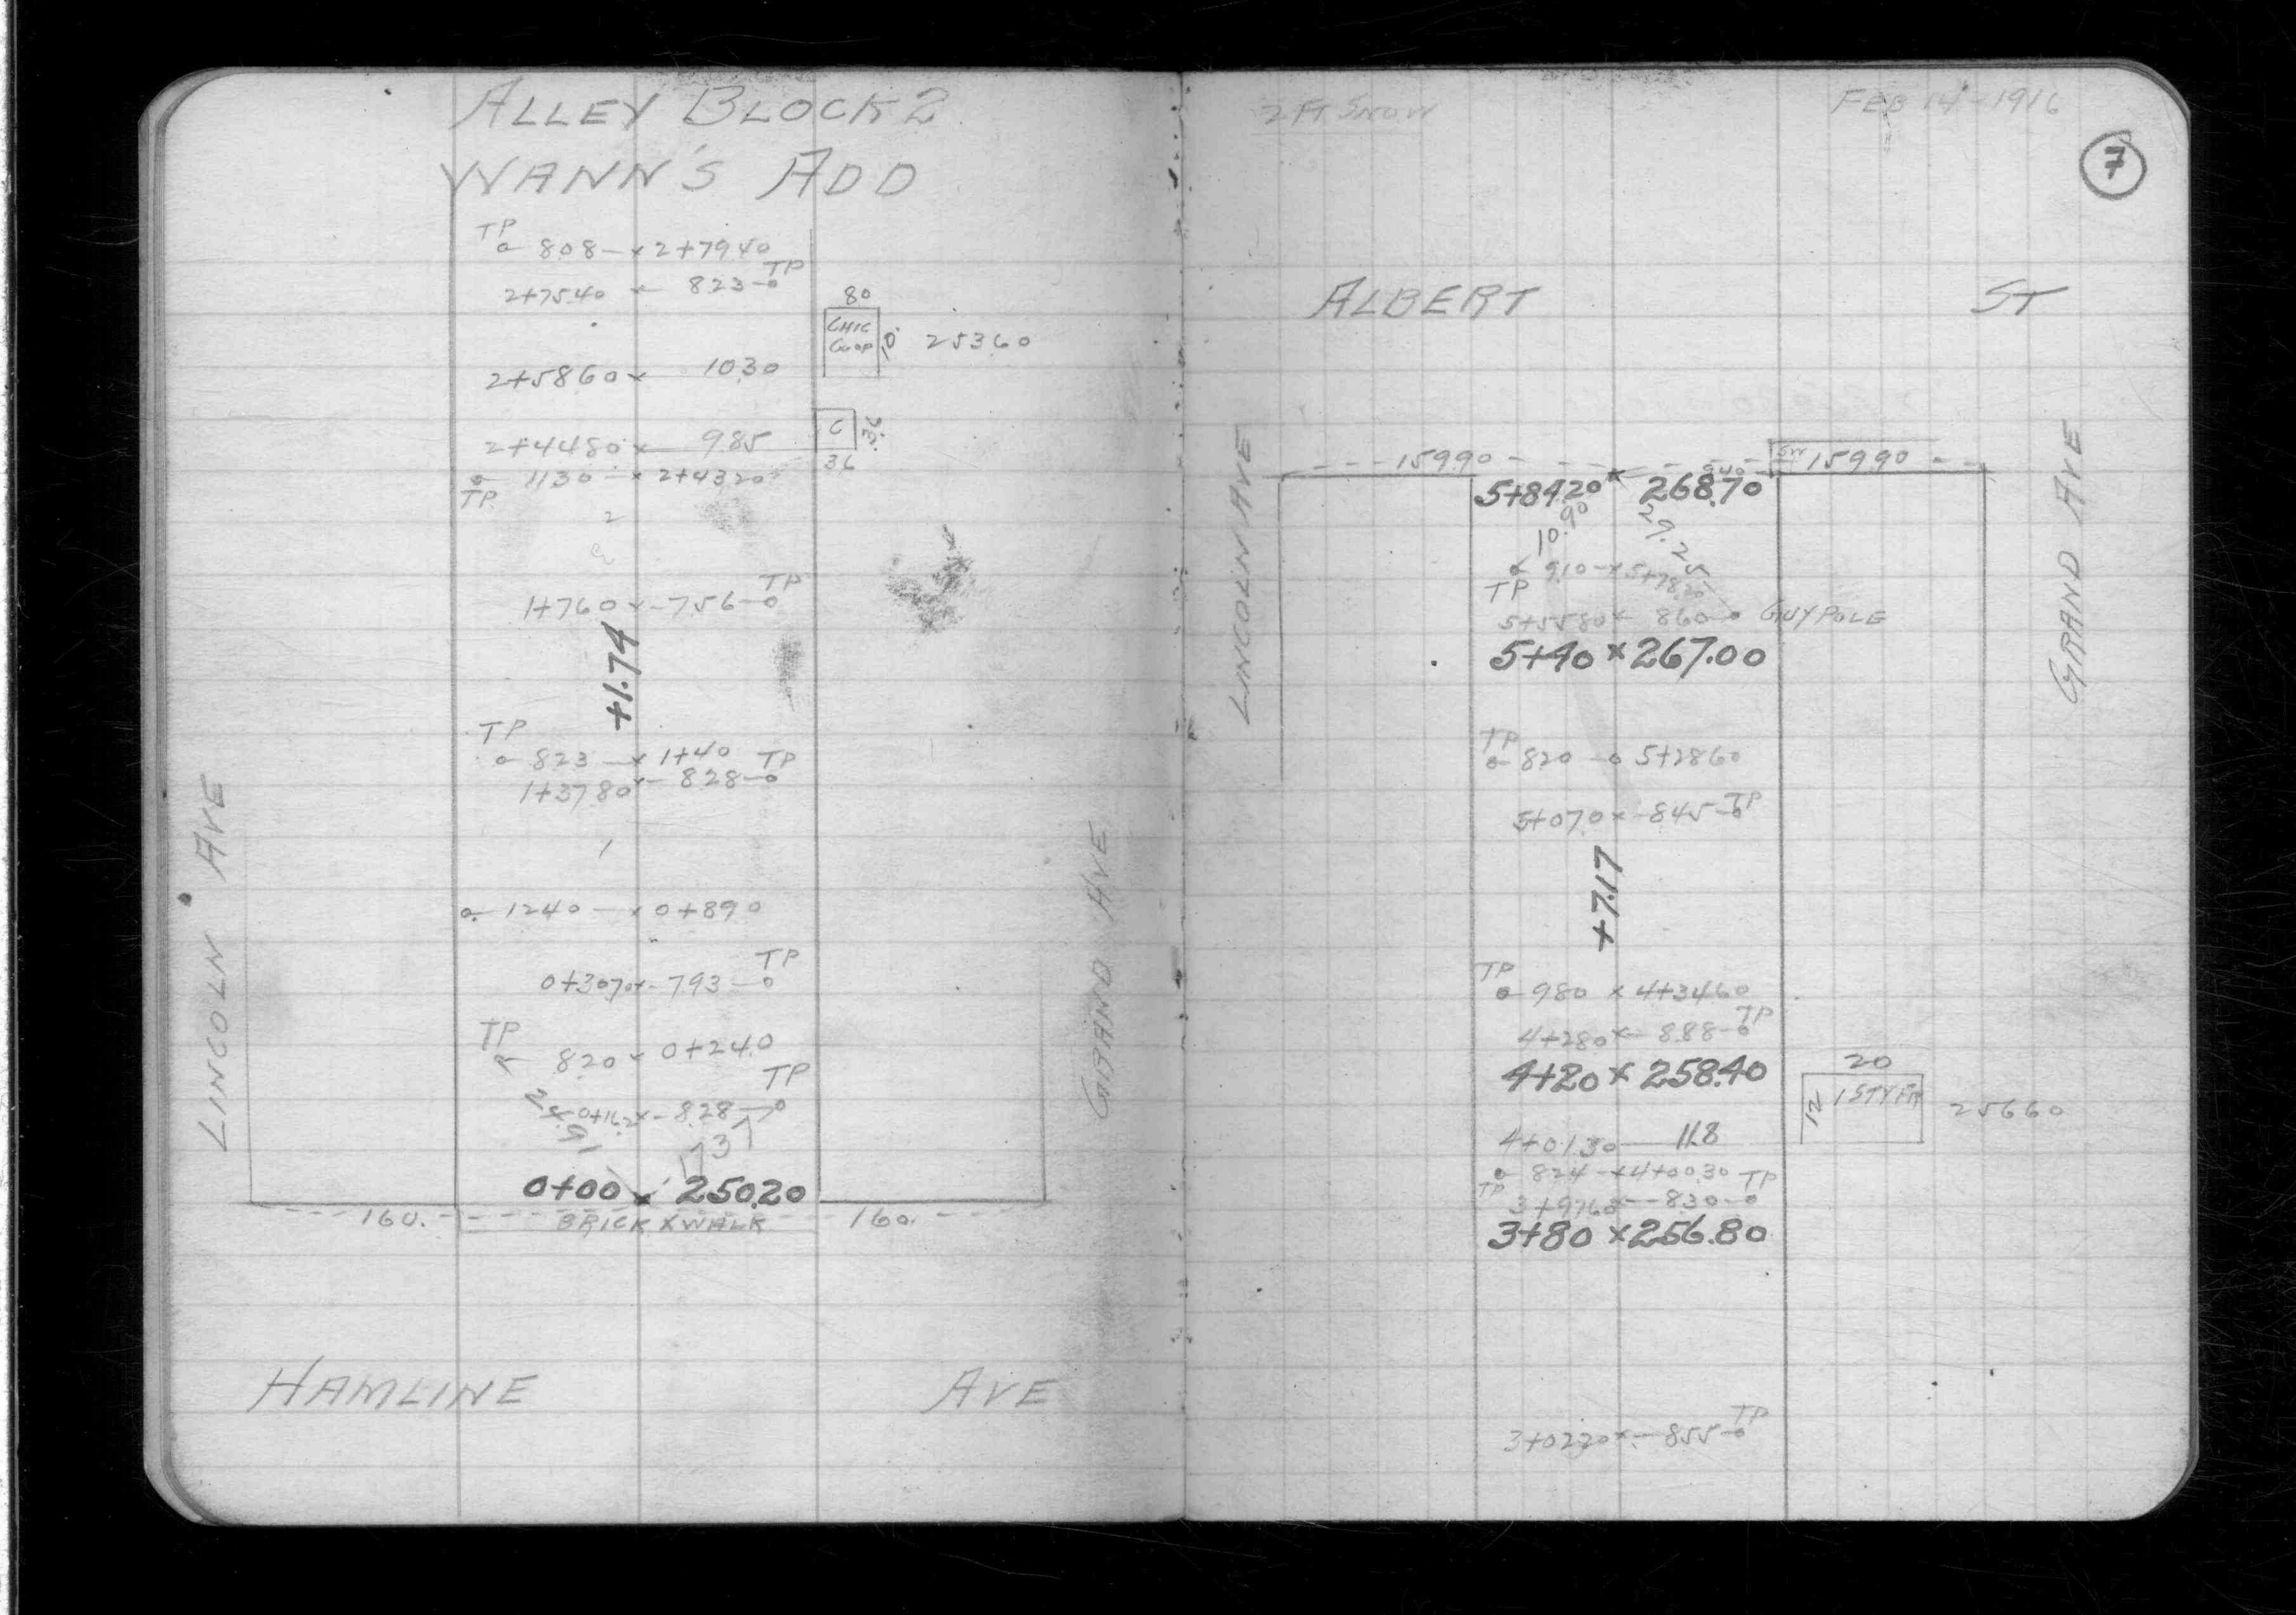 ALLEY BLOCK 2
WANN'S ADD
TP
808 x 2+7940
TP
2+7540 823
80
CHIC
Coop 10 25360
2+5860 x 1030
2+4480 x 985 C 36
36
1130 x 2+4320
TP
2
TP
1+760 x 756
+1.74
TP
823 x 1+40 TP
1+3780 x 828
1
1240 x 0+890
TP
0+3070 x 793
TP
820 x 0+240
TP
0+162 x 828
0+00 x 250.20
160. BRICK X WALK 160.
LINCOLN AVE
GRAND AVE
HAMLINE AVE
2 FT SNOW FEB 14 - 1916
7
ALBERT ST
15990 940 SW 15990
5+84.20 x 268.70
10.90 29.25
910 x 5+7820
TP
5+5580 x 860 GUY POLE
5+40 x 267.00
TP
820 5+2860
TP
5+070 x 845
+7.17
TP
980 x 4+3460
TP
4+280 x 888
4+20 x 258.40
20
12 1 STY FR 25660
4+0130 11.8
824 x 4+0030 TP
TP
3+9760 x 830
3+80 x 256.80
TP
3+0220 x 855
LINCOLN AVE
GRAND AVE